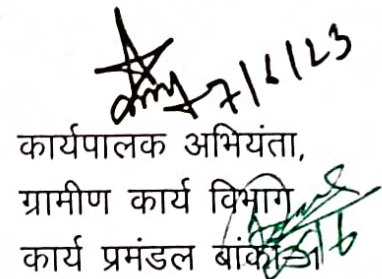 7/6/23
कार्यपालक अभियंता,
ग्रामीण कार्य विभाग
कार्य प्रमंडल